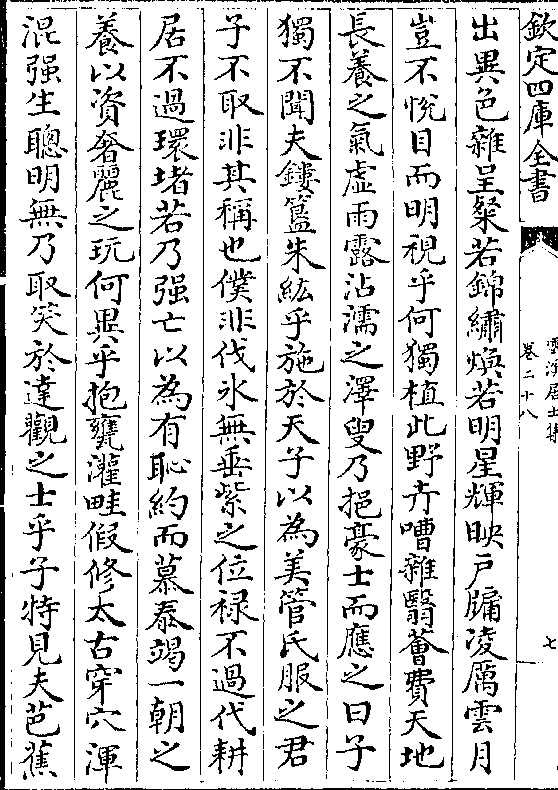 欽定四庫全書
雲溪居士集
卷二十八
七
出異色雜呈粲若錦繡煥若明星輝映戶牖凌厲雲月
豈不恱目而明視乎何獨植此野卉嘈雜翳薈費天地
長養之氣虛雨露沾濡之澤叟乃挹豪士而應之曰子
獨不聞夫鏤簋朱紘乎施於天子以為美管氏服之君
子不取非其稱也僕非伐氷無垂紫之位禄不過代耕
居不過環堵若乃强亡以為有恥約而慕泰竭一朝之
養以資奢麗之玩何異乎抱甕灌畦假修太古穿穴渾
混强生聰明無乃取笑於達觀之士乎子特見夫芭蕉